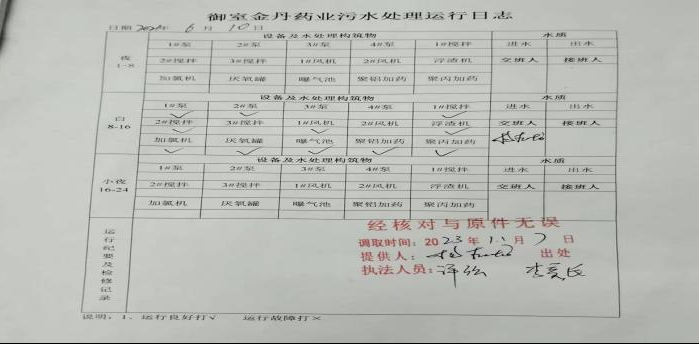 御室金丹药业污水处理运行日志
日期 6 月 10 日
设备及水处理构筑物 水质
夜 1-8
1#泵 2#泵 3#泵 4#泵 1#搅拌 进水 出水
2#搅拌 3#搅拌 1#风机 2#风机 浮渣机 交班人 接班人
加氯机 厌氧罐 曝气池 聚铝加药 聚丙加药
设备及水处理构筑物 水质
白 8-16
1#泵 2#泵 3#泵 4#泵 1#搅拌 进水 出水
✓ ✓ ✓ ✓ ✓
2#搅拌 3#搅拌 1#风机 2#风机 浮渣机 交班人 接班人
✓ ✓ ✓ ✓
加氯机 厌氧罐 曝气池 聚铝加药 聚丙加药
✓ ✓ ✓ ✓
设备及水处理构筑物 水质
小夜 16-24
1#泵 2#泵 3#泵 4#泵 1#搅拌 进水 出水
2#搅拌 3#搅拌 1#风机 2#风机 浮渣机 交班人 接班人
加氯机 厌氧罐 曝气池 聚铝加药 聚丙加药
运行纪要及检修记录
经核对与原件无误
调取时间: 2023 年 11 月 7 日
提供人: 出处
执法人员:
说明: 1、运行良好打√ 运行故障打×